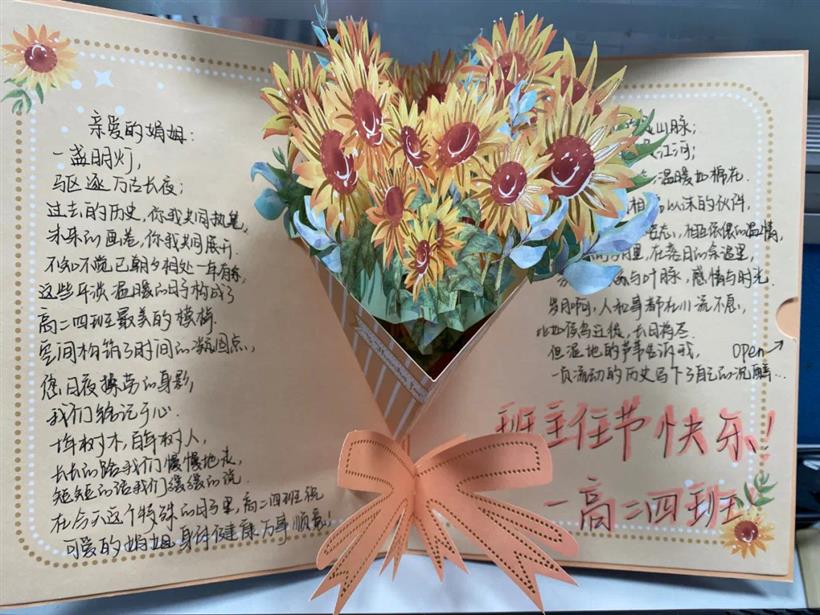 亲爱的娟姐：
一盏明灯，
驱逐万古长夜；
过去的历史，你我共同执笔，
未来的画卷，你我共同展开.
不知不觉已朝夕相处一年有余，
这些平淡温暖的日子构成了
高二四班最美的模样.
空间构筑了时间的凝固点，
您日夜操劳的身影，
我们铭记于心.
十年树木，百年树人，
长长的路我们慢慢地走，
短短的话我们缓缓的说.
在今天这个特殊的日子里,高二四班祝
可爱的娟姐身体健康万事顺意！
山脉；
江河；
温暖如棉花.
相 以沫的伙伴，
相互依偎的温情，
里，在落日的余 里，
与叶脉，感情与时光.
岁月啊，人和事都在川流不息，
比如候鸟迁徙，长日将尽.
但湿地的芦苇告诉我，
一页流动的历史写下了自己的沉醉…
open→
班主任节快乐！
一高二四班